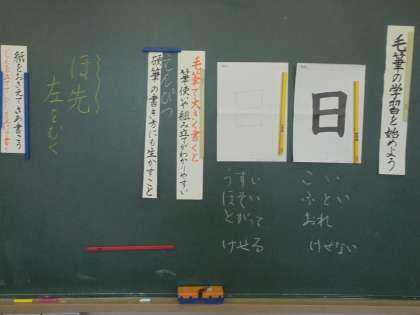 毛筆の学習を始めよう
日
日
こい
ふとい
おれ
けせない
うすい
ほそい
とがって
けせる
毛筆で大きく書くと
筆使いや組み立てがわかりやすい
えんぴつ
硬筆の書き方にも生かすこと
ほ先
左をむく
紙をおさえてさあ書こう